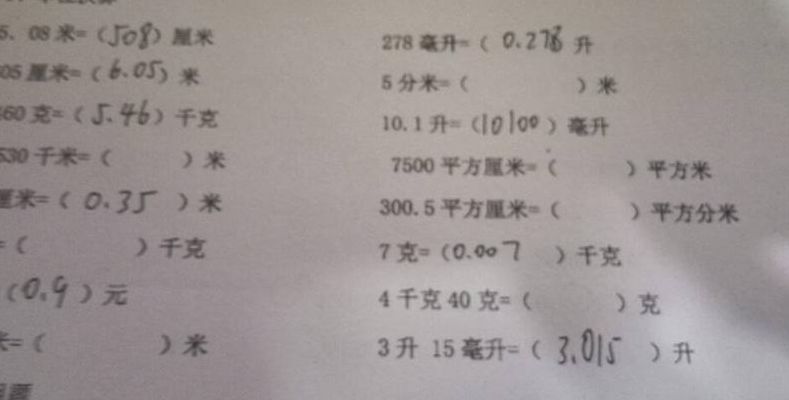 5.08米=(508)厘米
05厘米=(6.05)米
460克=(5.46)千克
530千米=( )米
厘米=(0.35)米
=( )千克
(0.9)元
米=( )米
278毫升=(0.278升
5分米=( )米
10.1升=(10100)毫升
7500平方厘米=( )平方米
300.5平方厘米=( )平方分米
7克=(0.007)千克
4千克40克=( )克
3升 15毫升=(3.015)升